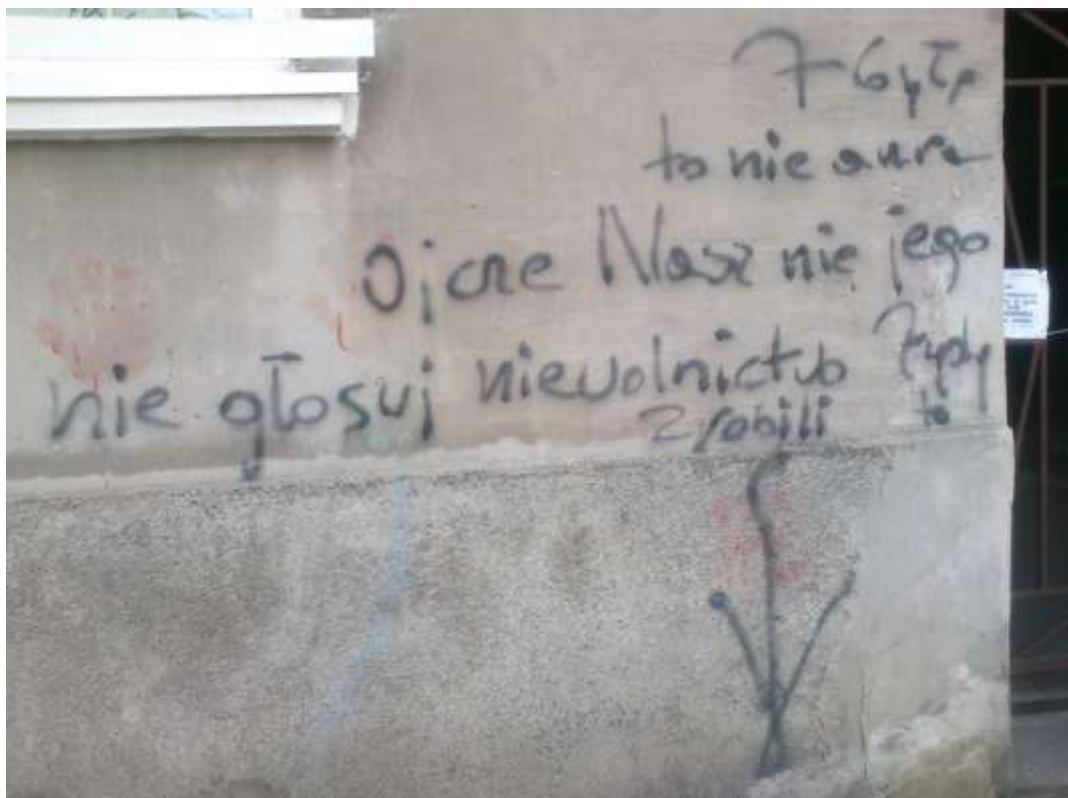 to nie
Ojcze Nasz nie jego
nie głosuj niewolnictwo żydy
zrobili to